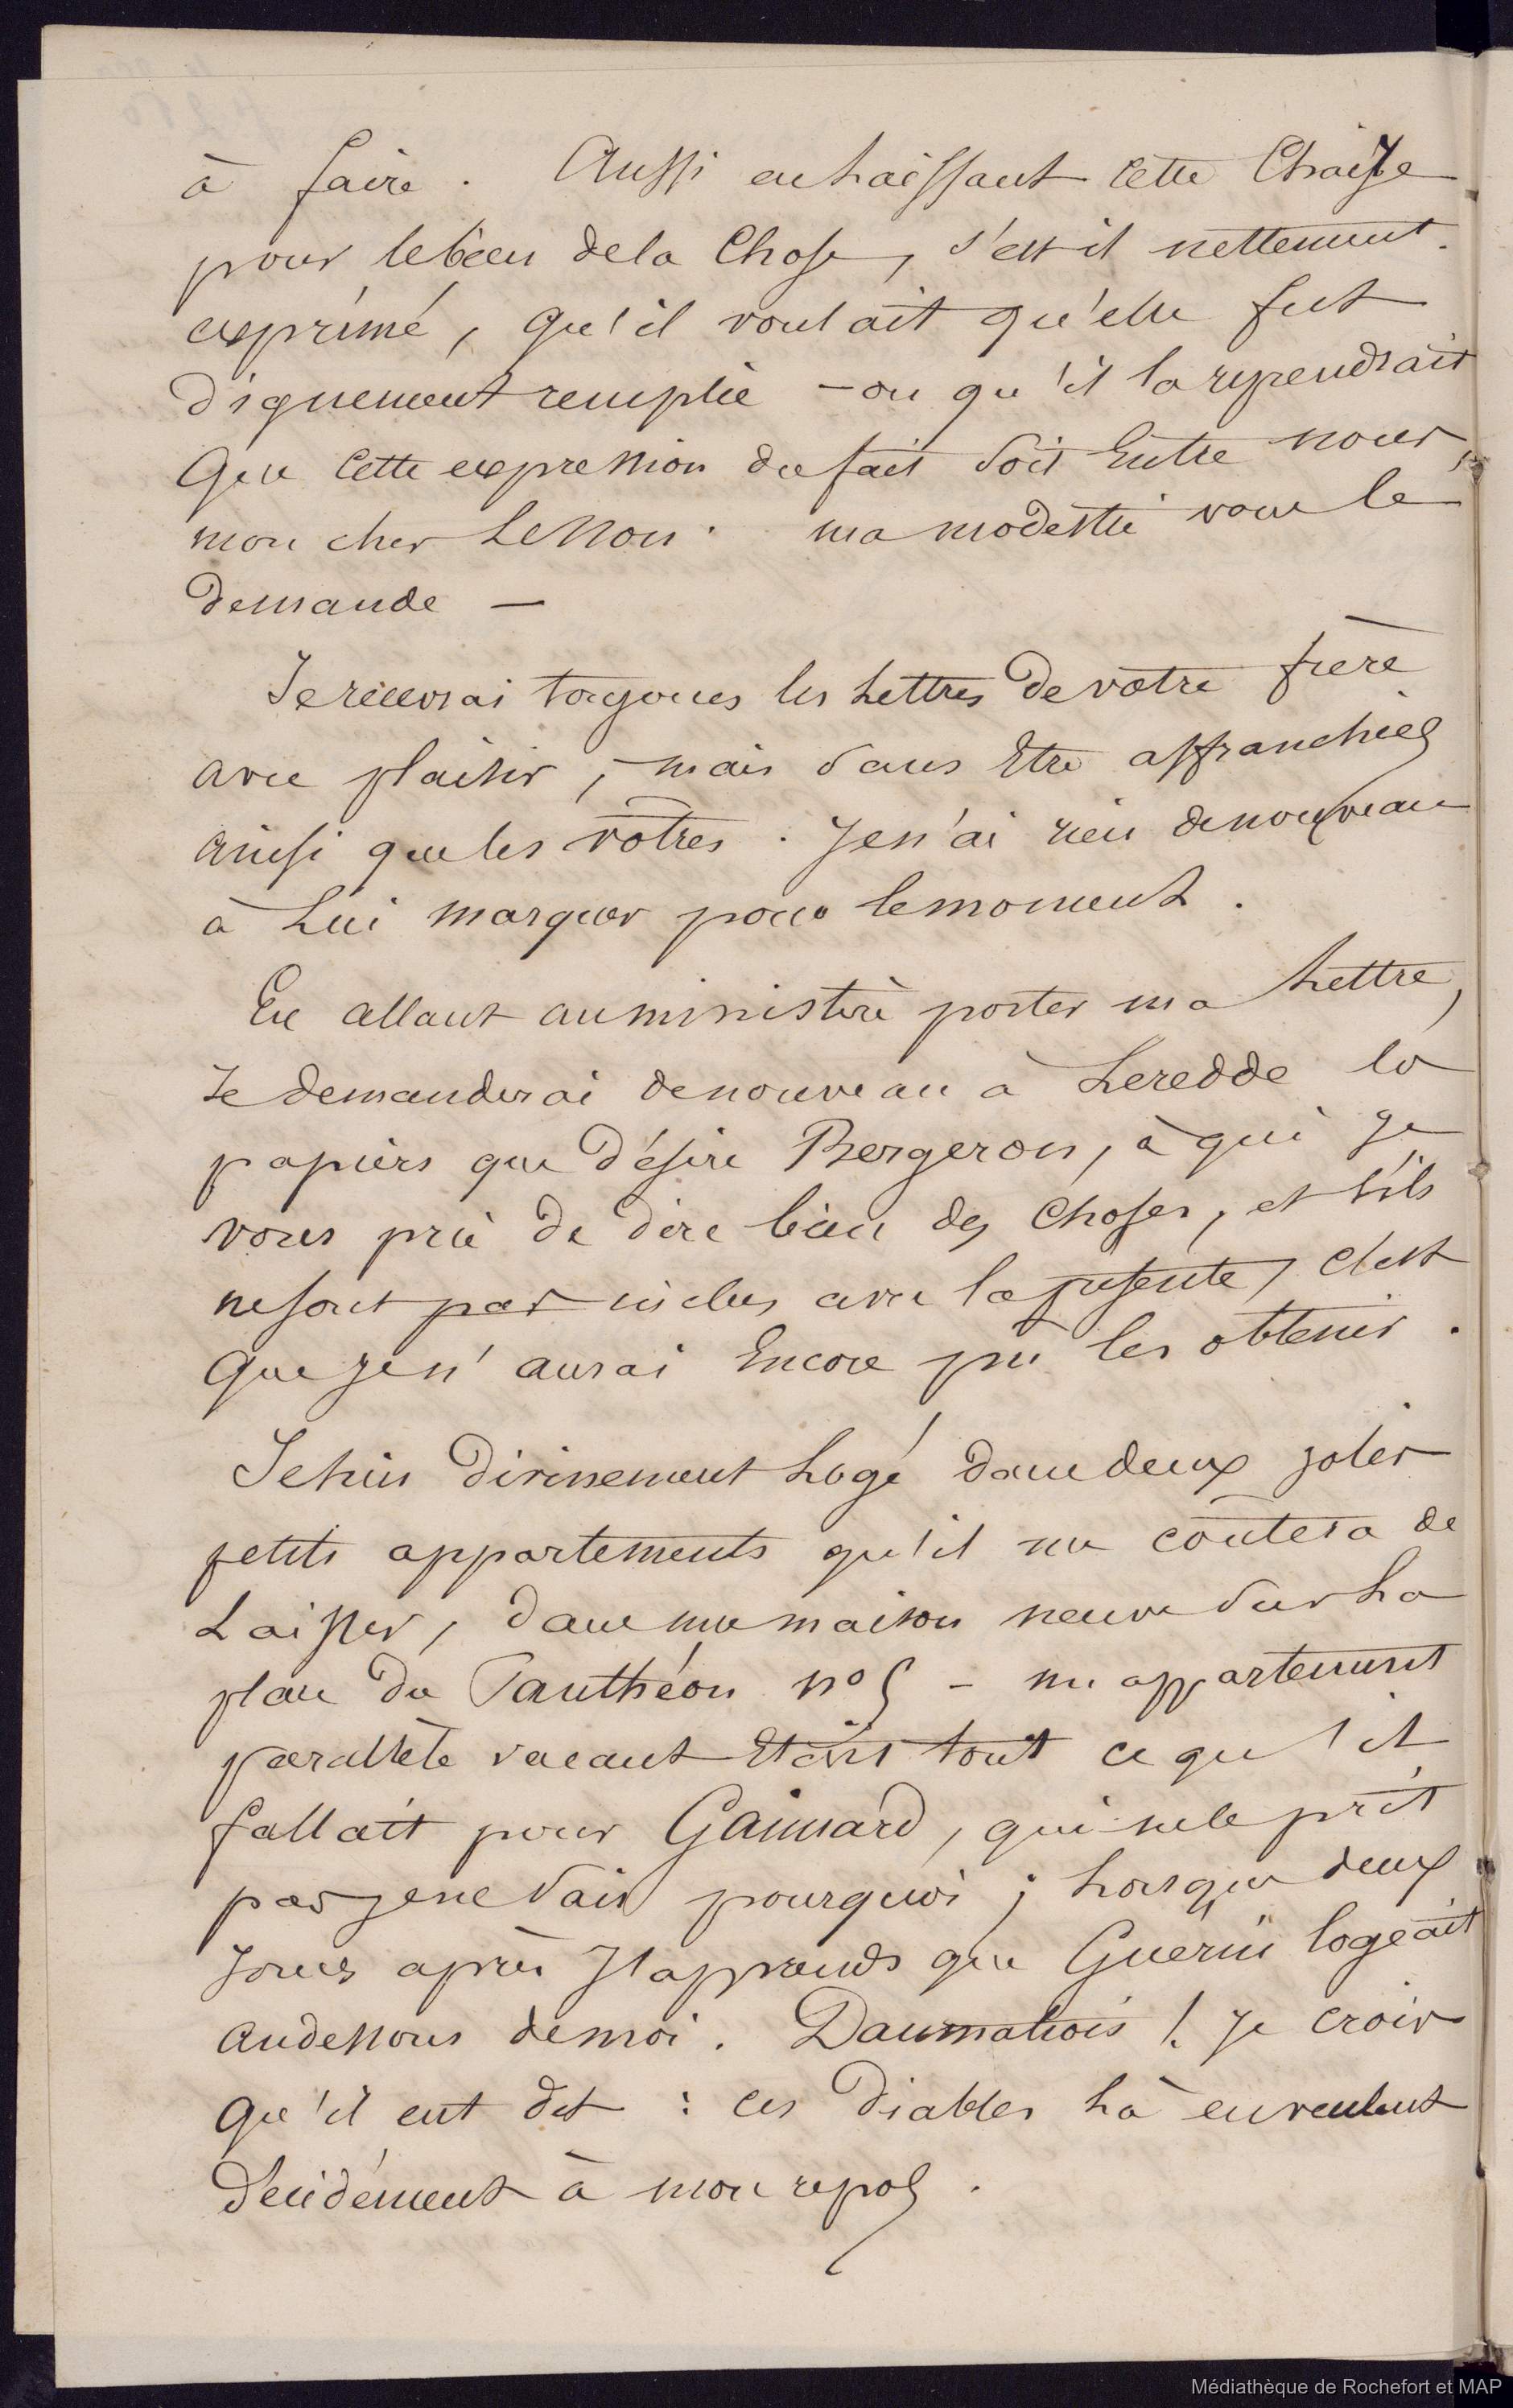 à faire. Aussi en haissant cette Chaise
pour le bien de la Chose, s'est il nettement
exprimé, qu'il voulait qu'elle fut
dignement remplie - ou qu'il la reprendrait
Que cette expression du fait soit Entre nous,
mon cher Lesson. ma modestie vous le
demande —
Je recevrai toujours les Lettres de votre frère
avec plaisir, mais sans Etre affranchies
ainsi que les vôtres. Je n'ai rien de nouveau
à Lui marquer pour le moment.
En allant au ministère porter ma Lettre,
Je demanderai de nouveau à Leredde les
papiers que désire Bergeron, à qui je
vous prie de dire bien des Choses, et s'ils
ne sont pas inclus avec la présente, c'est
que je n'aurai Encore pu les obtenir.
Je suis divinement Logé dans deux jolis
petits appartements qu'il me coûtera de
Laisser, dans une maison neuve sur La
place du Panthéon n° 5 - un appartement
parallèle vacant Etait tout ce qu'il
fallait pour Gaimard, qui ne le prit
pas je ne sais pourquoi; Lorsque deux
Jours après Il apprends que Guérin logeait
au dessous de moi. Je crois
qu'il eut dit : ces Diables Là en veulent
décidément à mon repos.
Médiathèque de Rochefort et MAP